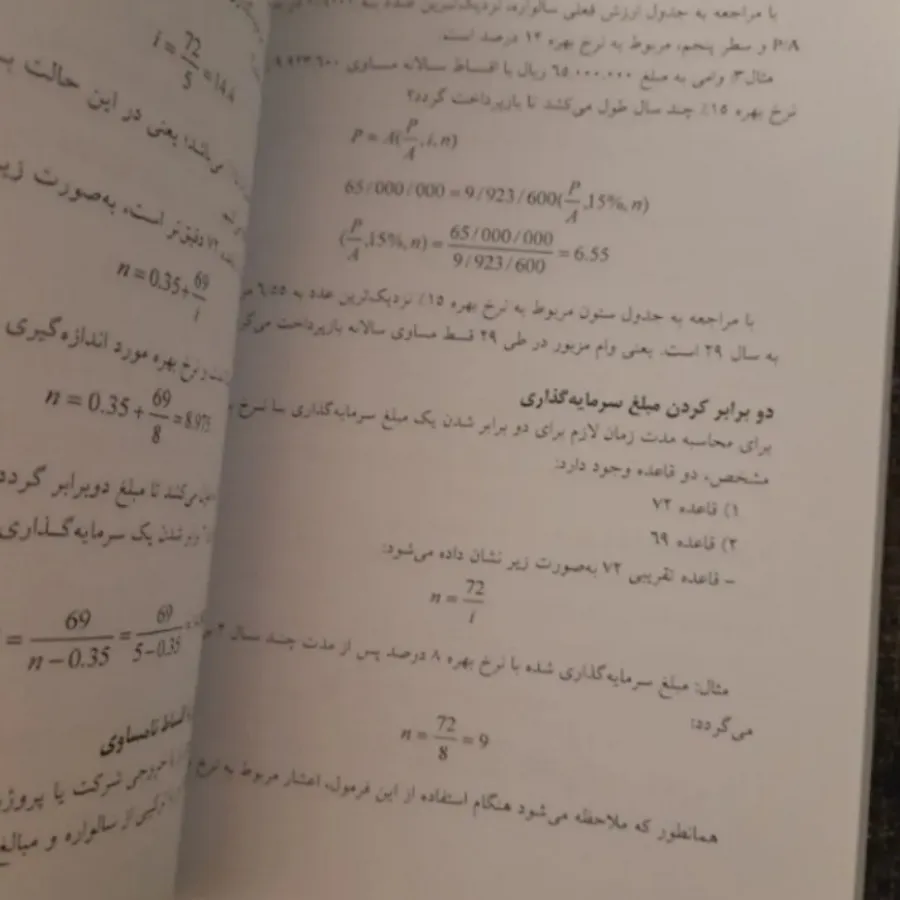 با مراجعه به جدول ارزش فعلی سالواره، نزدیک‌ترین عدد به
P/A و سطر پنجم، مربوط به نرخ بهره ۱۴ درصد است.
مثال۳: وامی به مبلغ ۶۵.۰۰۰.۰۰۰ ریال با اقساط سالانه مساوی ۹.۹۲۳.۶۰۰
نرخ بهره ۱۵٪ چند سال طول می‌کشد تا بازپرداخت گردد؟
P = A(P/A, i, n)
65/000/000 = 9/923/600(P/A, 15%, n)
(P/A, 15%, n) = 65/000/000 / 9/923/600 = 6.55
با مراجعه به جدول ستون مربوط به نرخ بهره ۱۵٪ نزدیک‌ترین عدد به ۶/۵۵
به سال ۲۹ است. یعنی وام مزبور در طی ۲۹ قسط مساوی سالانه بازپرداخت
دو برابر کردن مبلغ سرمایه‌گذاری
برای محاسبه مدت زمان لازم برای دو برابر شدن یک مبلغ سرمایه‌گذاری با نرخ
مشخص، دو قاعده وجود دارد:
۱) قاعده ۷۲
۲) قاعده ۶۹
– قاعده تقریبی ۷۲ به‌صورت زیر نشان داده می‌شود:
n = 72/i
مثال: مبلغ سرمایه‌گذاری شده با نرخ بهره ۸ درصد پس از مدت چند سال ۲
می‌گردد:
n = 72/8 = 9
همانطور که ملاحظه می‌شود هنگام استفاده از این فرمول، اعشار مربوط به نرخ
i = 72/5 = 14.4
می‌باشد؛ یعنی در این حالت
۷۲ دقیق‌تر است، به‌صورت
n = 0.35 + 69/i
و نرخ بهره مورد اندازه‌گیری
n = 0.35 + 69/8 = 8.975
می‌کشد تا مبلغ دوبرابر گردد
برابر شدن یک سرمایه‌گذاری
= 69/n − 0.35 = 69/5−0.35
اقساط نامساوی
خروجی شرکت یا
از سالواره و مبالغ